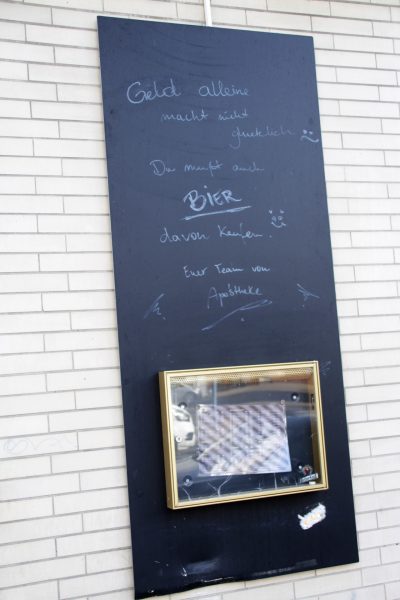 Geld alleine
macht nicht
glücklich
Du mußt auch
BIER
davon kaufen.
Euer Team von
Apotheke